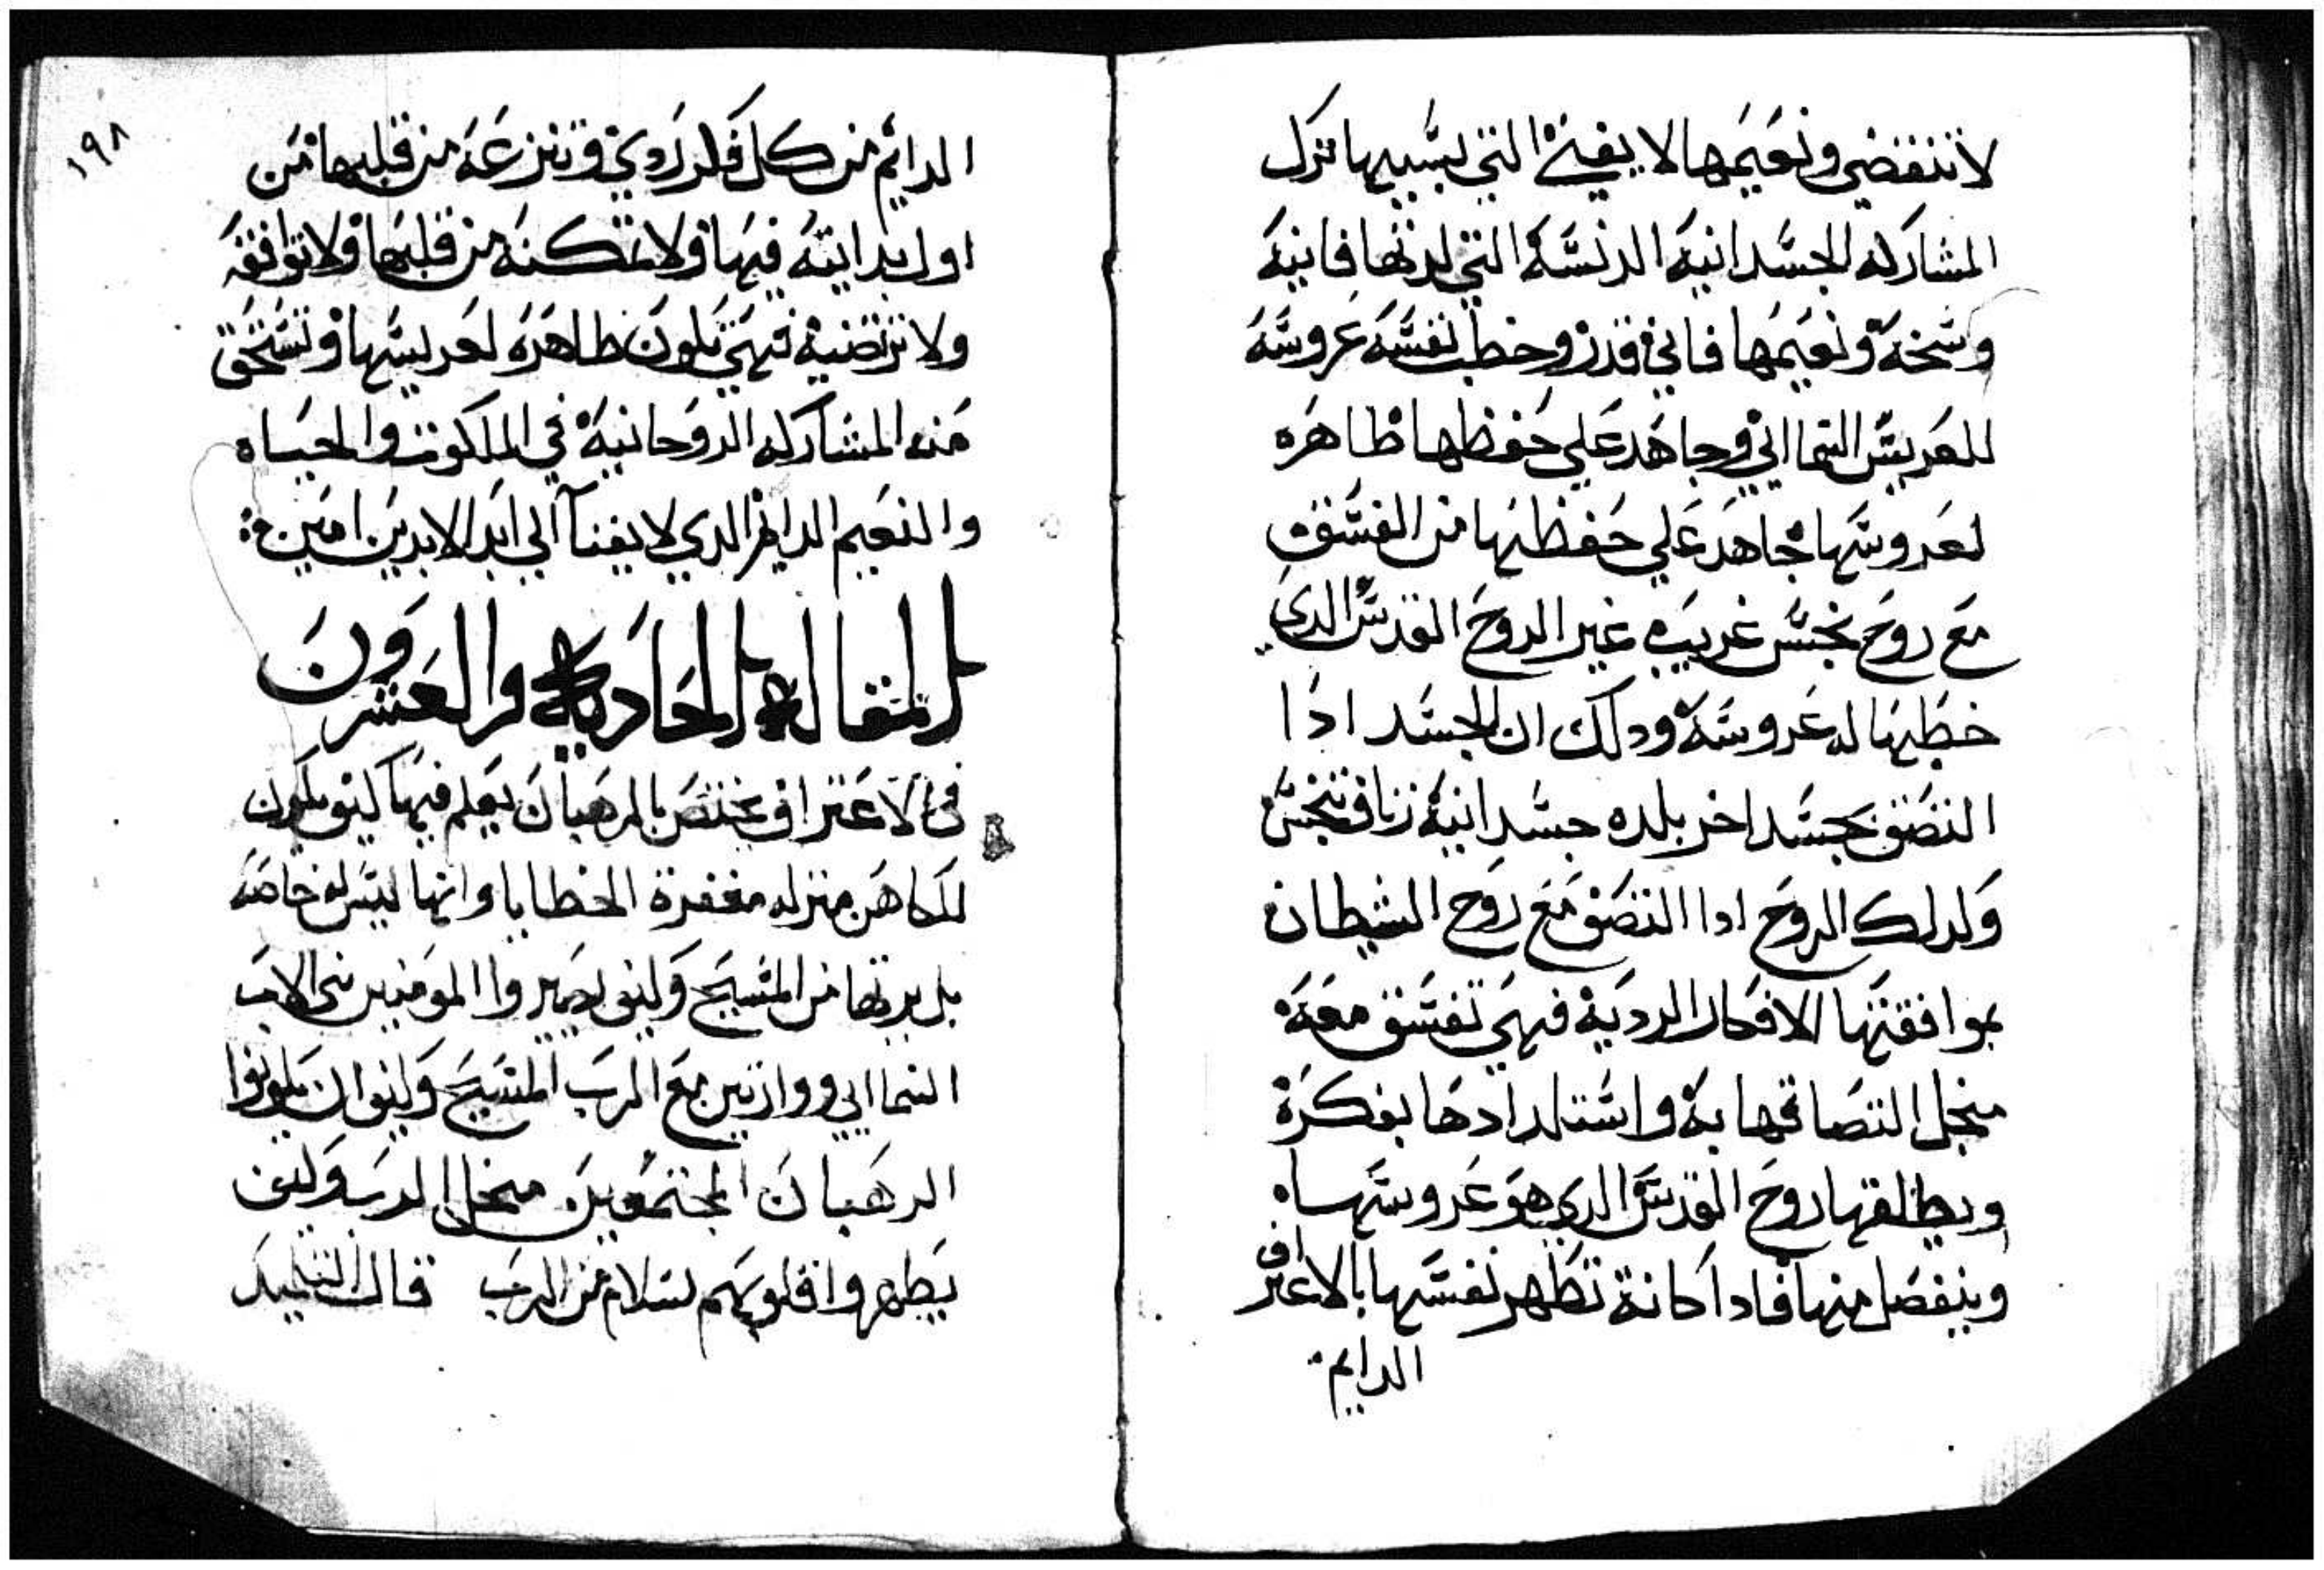 لا تنقضي ونعيمها لا يفنى التي بسببها ترك
المشاركه الجسدانية الدنسة التي لدتها فانية
وسخة ونعيمها فاني قدز وخطب نفسه عروسه
للعريس السماايي وجاهد علي حفظها ظاهره
لعروسها جاهد علي حفظها من الفسق
مع روح نجس غريبه غير الروح القدس الدي
خطبها له عروسة ودلك ان الجسد ادا
التصق بجسد اخر بلده جسدانية زنا فتنجس
ولدلك الروح ادا التصق مع روح الشيطان
بموافقتها الافكار الردية فهي تفسق معه
منجل التصاقها به واستلدادها بفكرة
ويطلقها روح القدس الدي هو عروسها
وينفصل منها فادا كانة تطهر نفسها بالاعتراف
الدايم
١٩٨
الدايم من كل فكر ردي وتنزعه من قلبها من
اول بدايته فيها ولا تمكنه من قلبها ولا توافقه
ولا ترتضيه فهي تكون طاهره لعريسها وتستحق
منه المشاركه الروحانية في الملكوت والحياه
والنعيم الدايم الدي لا يفنا الي ابد الابدين امين
المقاله الحاديه والعشرون
في الاعتراف يختص بالرهبان يعلم فيها كيف يكون
للكاهن منزله مغفرة الخطايا وانها ليس له خاصه
بل يرتها من المسيح وكيف يصيروا المومنين بني الاب
السماايي ووارتين مع الرب المسيح وكيف ان يكونوا
الرهبان المجتمعين منجل الرب وكيف
يطهروا قلوبهم بسلام من الرب قال التلميد